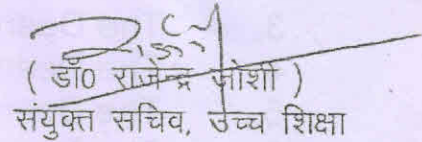 ( डॉ0 राजेन्द्र जोशी )
संयुक्त सचिव, उच्च शिक्षा